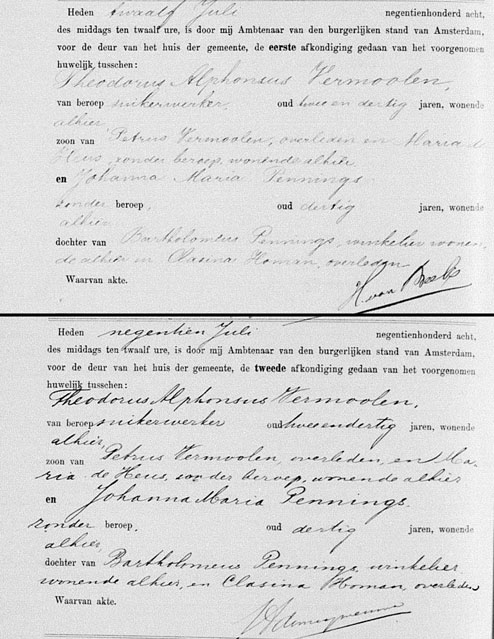 Heden twaalf Juli negentienhonderd acht,
des middags ten twaalf ure, is door mij Ambtenaar van den burgerlijken stand van Amsterdam,
voor de deur van het huis der gemeente, de eerste afkondiging gedaan van het voorgenomen
huwelijk, tusschen:
Theodorus Alphonsus Vermoolen,
van beroep suikerwerker, oud twee en dertig jaren, wonende
alhier
zoon van Petrus Vermoolen, overleden en Maria de
Heus, zonder beroep, wonende alhier
en Johanna Maria Pennings
zonder beroep, oud dertig jaren, wonende
alhier
dochter van Bartholomeus Pennings, winkelier wonen-
de alhier en Clasina Homan, overleden
Waarvan akte.
Heden negentien Juli negentienhonderd acht,
des middags ten twaalf ure, is door mij Ambtenaar van den burgerlijken stand van Amsterdam,
voor de deur van het huis der gemeente, de tweede afkondiging gedaan van het voorgenomen
huwelijk tusschen:
Theodorus Alphonsus Vermoolen,
van beroep suikerwerker oud twee en dertig jaren, wonende
alhier,
zoon van Petrus Vermoolen, overleden, en Ma-
ria de Heus, zonder beroep, wonende alhier
en Johanna Maria Pennings,
zonder beroep, oud dertig jaren, wonende
alhier,
dochter van Bartholomeus Pennings, winkelier
wonende alhier, en Clasina Homan, overleden
Waarvan akte.